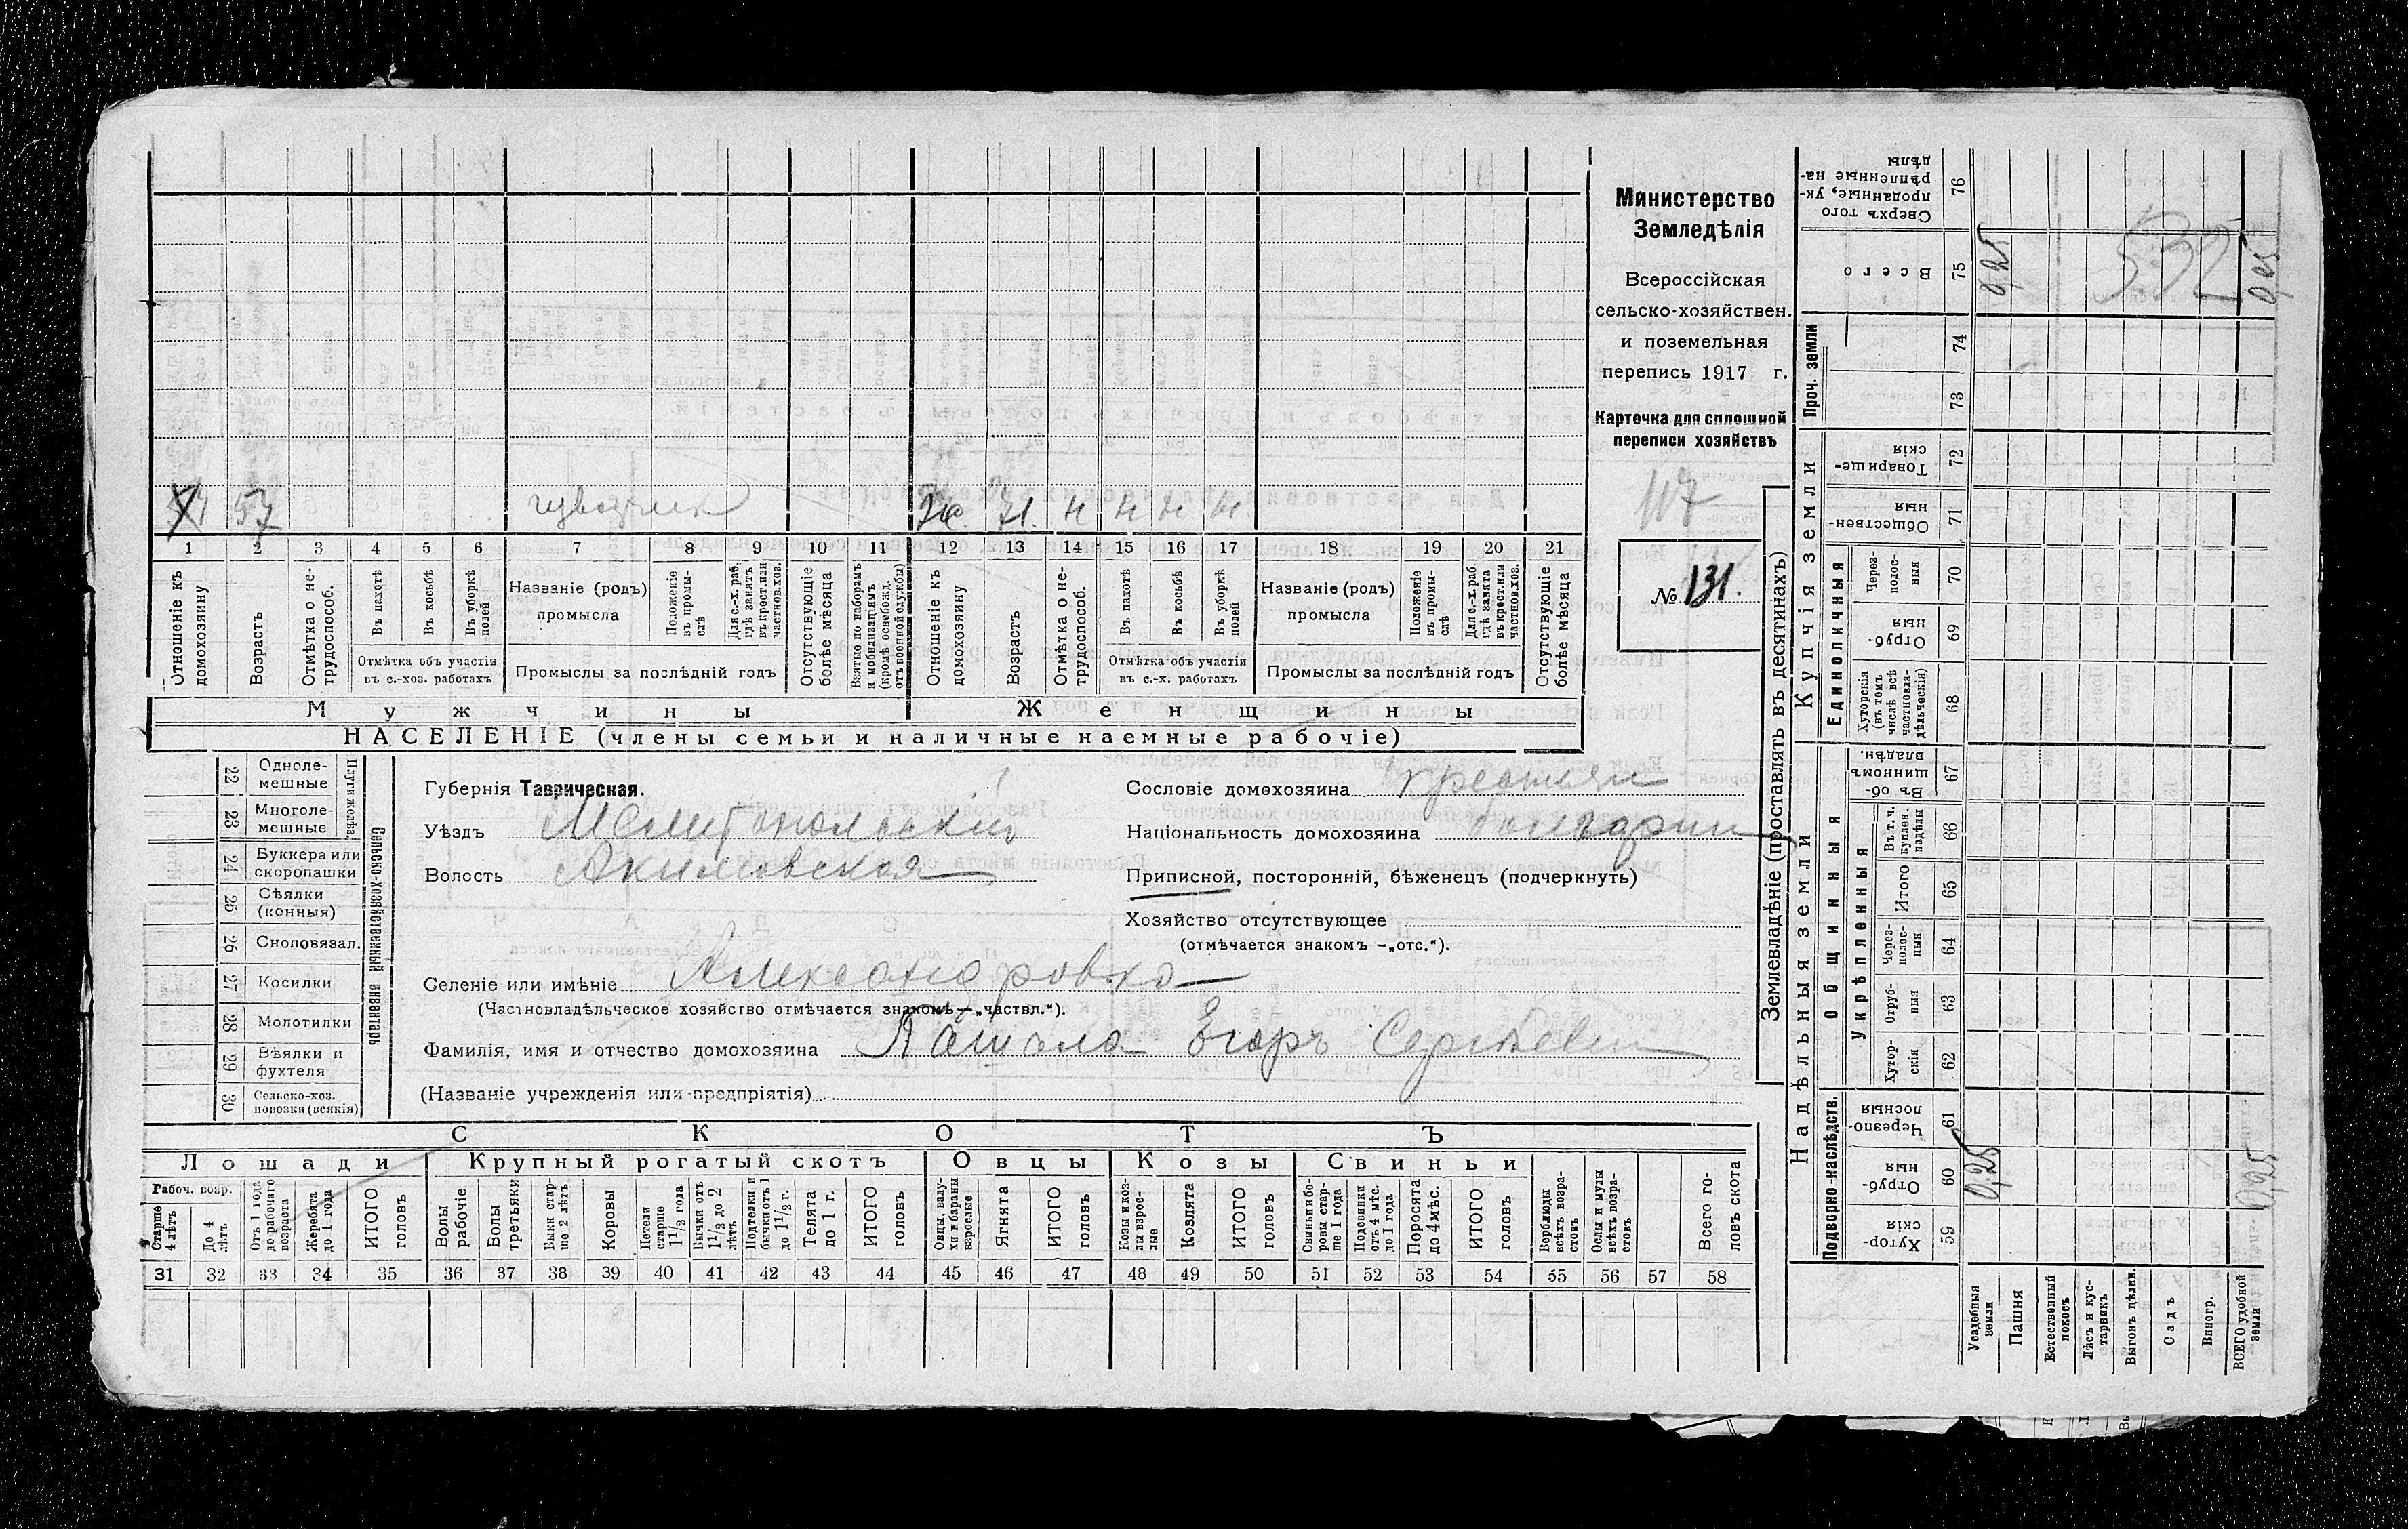 57
ж. 71. н н н н
1 2 3 4 5 6 7 8 9 10 11 12 13 14 15 16 17 18 19 20 21
Отношеніе къ домохозяину
Возрастъ
Отмѣтка о не-трудоспособ.
Въ пахотѣ
Въ косьбѣ
Въ уборкѣ полей
Отмѣтка объ участіи въ с.-хоз. работахъ
Названіе (родъ) промысла
Положеніе въ промы-слѣ
Для с.-х. раб. гдѣ занятъ въ крест. или частнов. хоз.
Промыслы за послѣдній годъ
Отсутствующіе болѣе мѣсяца
Взятые по наборамъ и мобилизаціямъ (кромѣ освобожд. отъ военной службы)
Отношеніе къ домохозяину
Возрастъ
Отмѣтка о не-трудоспособ.
Въ пахотѣ
Въ косьбѣ
Въ уборкѣ полей
Отмѣтка объ участіи въ с.-х. работахъ
Названіе (родъ) промысла
Положеніе въ промы-слѣ
Для с.-х. раб. гдѣ занята въ крест. или частнов. хоз.
Промыслы за послѣдній годъ
Отсутствующіе болѣе мѣсяца
Мужчины
Женщины
НАСЕЛЕНІЕ (члены семьи и наличные наемные рабочіе)
Министерство
Земледѣлія
Всероссійская
сельско-хозяйствен.
и поземельная
перепись 1917 г.
Карточка для сплошной
переписи хозяйствъ
117
№ 131.
22 Одноле-мешные
23 Многоле-мешные
Плуги желѣз.
24 Буккера или скоропашки
25 Сѣялки (конныя)
26 Сноповязал.
27 Косилки
28 Молотилки
29 Вѣялки и фухтеля
30 Сельско-хоз. повозки (всякія)
Сельско-хозяйственный инвентарь
Губернія Таврическая.
Уѣздъ Мелитопольскій
Волость Акимовская
Сословіе домохозяина крестьян
Національность домохозяина болгарин
Приписной, посторонній, бѣженецъ (подчеркнуть)
Хозяйство отсутствующее
(отмѣчается знакомъ —„отс.“).
Селеніе или имѣніе Александровка
(Частновладѣльческое хозяйство отмѣчается знакомъ—„частвл.“).
Фамилія, имя и отчество домохозяина Егоръ Сергѣевич
(Названіе учрежденія или предпріятія)
СКОТЪ
Лошади
Крупный рогатый скотъ
Овцы
Козы
Свиньи
Рабоч. возр.
Старше 4 лѣтъ
До 4 лѣтъ
Отъ 1 года до рабочаго возраста
Жеребята до 1 года
ИТОГО головъ
Волы рабочіе
Волы третьяки
Быки стар-ше 2 лѣтъ
Коровы
Нетели старше 1½ года
Быки отъ 1½ до 2 лѣтъ
Подтелки и бычки отъ 1 до 1½ г.
Телята до 1 г.
ИТОГО головъ
Овцы, валу-хи и бараны взрослые
Ягнята
ИТОГО головъ
Козы и коз-лы взрос-лые
Козлята
ИТОГО головъ
Свиньи и бо-ровы стар-ше 1 года
Подсвинки отъ 4 мѣс. до 1 года
Поросята до 4 мѣс.
ИТОГО головъ
Верблюды всѣхъ возра-стовъ
Ослы и мулы всѣхъ возра-стовъ
Всего го-ловъ скота
31 32 33 34 35 36 37 38 39 40 41 42 43 44 45 46 47 48 49 50 51 52 53 54 55 56 57 58
Землевладѣніе (проставлять въ десятинахъ)
Надѣльныя земли
Купчія земли
Проч. земли
Подворно-наслѣдств.
Общинныя
Укрѣпленныя
Единоличныя
Сверхъ того проданные, ук-рѣпленные на-дѣлы 76
Всего 75 0,25 0,25
532
74
73
Товарище-скія 72
Обществен-ныя 71
Через-полос-ныя 70
Отруб-ныя 69
Хуторскія (въ томъ числѣ всѣ частновла-дѣльческія) 68
Въ об-щинномъ владѣн. 67
Въ т. ч. куплен. надѣлы 66
Итого 65
Через-полос-ныя 64
Отруб-ныя 63
Хутор-скія 62
Черезпо-лосныя 61
Отруб-ныя 60 0,25 0,25
Хутор-скія 59
Усадебныя земли
Пашня
Естественный покосъ
Лѣсъ и кус-тарникъ
Выгонъ цѣлин.
Садъ
Виногр.
ВСЕГО удобной земли